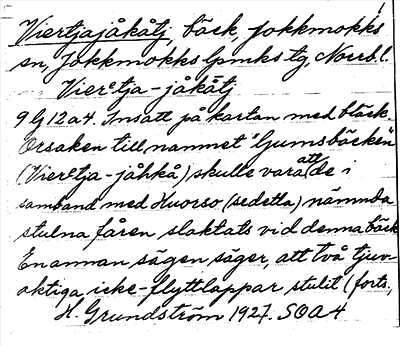 Viertjajåkåtj, bäck, Jokkmokks
sn, Jokkmokks lpmks tg, Norrb. l.
Vier̄tja-jåkåtj
9 G 12 a 4. Insatt på kartan med bläck.
Orsaken till namnet "Ljumsbäcken"
(Vier̄tja-jåhkå) skulle vara att de i
samband med Huorso (sedetta) nämnda
stulna fåren slaktats vid denna bäck
En annan sägen säger, att två tjuv-
aktiga icke-flyttlappar stulit (forts.
H. Grundström 1927. SOA4